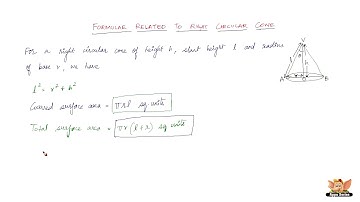 FORMULAE RELATED TO RIGHT CIRCULAR CONE
For a right circular cone of height h, slant height l and radius
of base r, we have
l² = r² + h²
Curved surface area = πrl sq units
Total surface area = πr(l+r) sq units
V
l
h
A
B